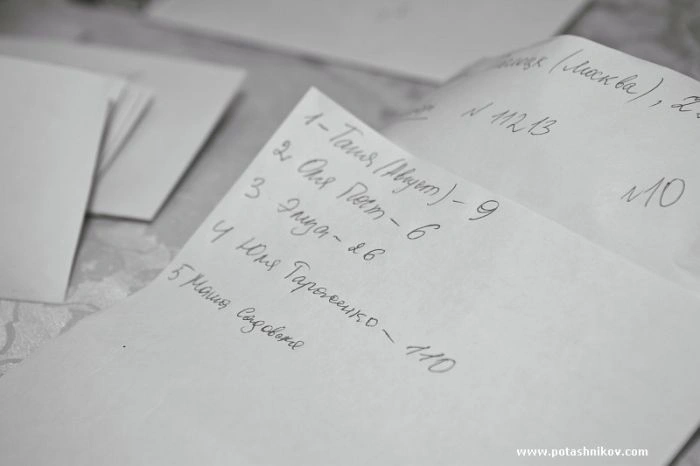 (Москва), 2
N 11213
N10
1 - Таня (Август) - 9
2 Оля Пост - 6
3 Элиза - 26
4 Юля Тарасенко - 110
5 Маша Садовская
www.potashnikov.com